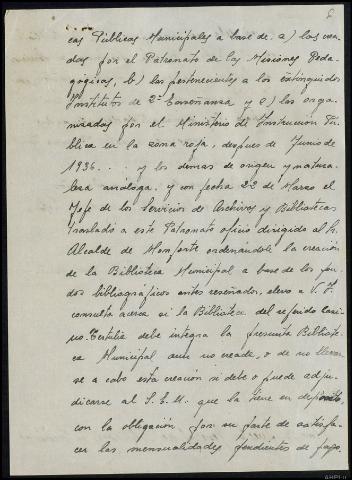 cas Públicas Municipales a base de a) las crea-
das por el Patronato de las Misiones Peda-
gógicas, b) los pertenecientes a los extinguidos
Institutos de 2ª Enseñanza y c) los orga-
nizados por el Ministerio de Instrucción Pú-
blica en la zona roja, después de Junio de
1936... y los demas de origen y natura-
leza análoga. y con fecha 22 de Marzo el
Jefe de los Servicios de Archivos y Bibliotecas
trasladó a este Patronato oficio dirigido al Sr.
Alcalde de Monforte ordenándole la creación
de la Biblioteca Municipal a base de los fon-
dos bibliográficos antes reseñados, elevo a V.I.
consulta acerca si la Biblioteca del referido Casi-
no-Tertulia debe integrar la presunta Bibliote-
ca Municipal aun no creada, o de no llevar-
se a cabo esta creación si debe o puede adju-
dicarse al S.E.U. que la tiene en depósito
con la obligación por su parte de satisfa-
cer las mensualidades pendientes de pago.